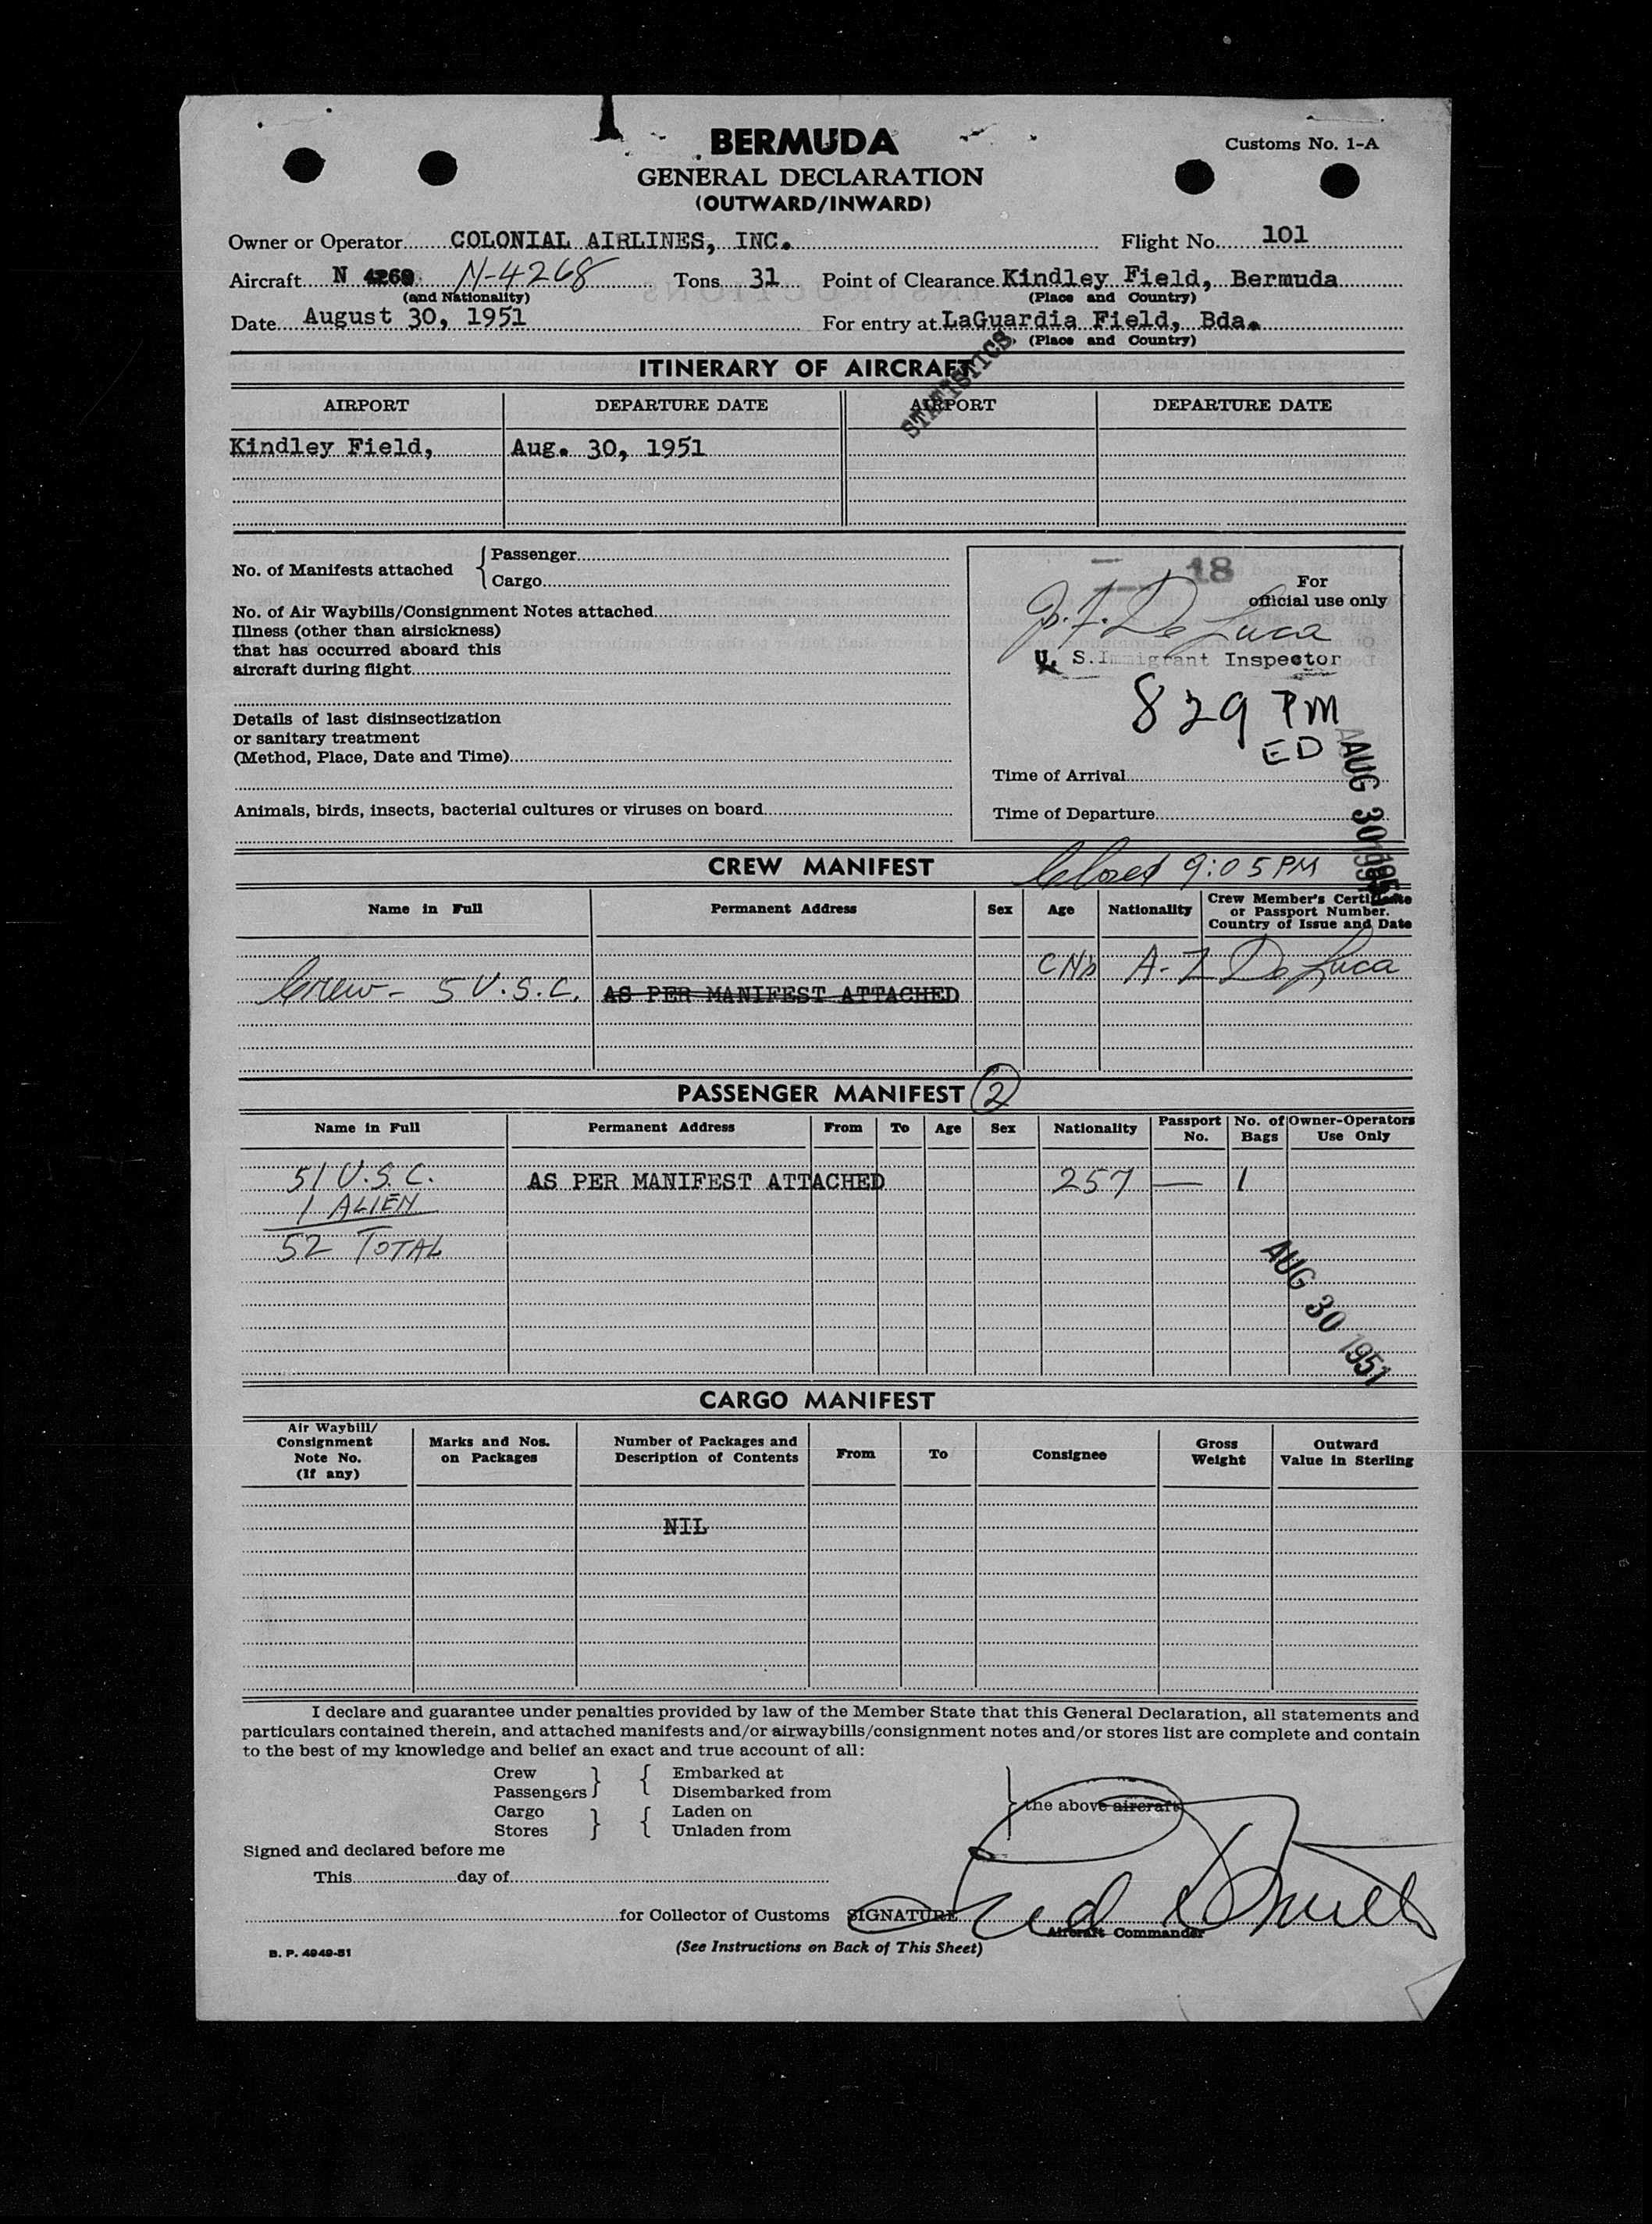 BERMUDA
Customs No. 1-A
GENERAL DECLARATION
(OUTWARD/INWARD)
Owner or Operator COLONIAL AIRLINES, INC. Flight No. 101
Aircraft N 4268 N-4268 Tons 31 Point of Clearance Kindley Field, Bermuda
(and Nationality) (Place and Country)
Date August 30, 1951 For entry at LaGuardia Field, Bda.
(Place and Country)
STATISTICS
ITINERARY OF AIRCRAFT
AIRPORT DEPARTURE DATE AIRPORT DEPARTURE DATE
Kindley Field, Aug. 30, 1951
No. of Manifests attached { Passenger
Cargo
No. of Air Waybills/Consignment Notes attached
Illness (other than airsickness)
that has occurred aboard this
aircraft during flight
Details of last disinsectization
or sanitary treatment
(Method, Place, Date and Time)
Animals, birds, insects, bacterial cultures or viruses on board
18
For
official use only
De Luca
U. S. Immigrant Inspector
829 PM
ED
Time of Arrival
Time of Departure
AUG 30 1951
CREW MANIFEST Closed 9:05 PM
Name in Full Permanent Address Sex Age Nationality Crew Member's Certificate
or Passport Number.
Country of Issue and Date
De Luca
Crew - 5 U.S.C. AS PER MANIFEST ATTACHED
PASSENGER MANIFEST 2
Name in Full Permanent Address From To Age Sex Nationality Passport No. No. of Bags Owner-Operators Use Only
51 U.S.C. AS PER MANIFEST ATTACHED 257 — 1
1 ALIEN
52 TOTAL
AUG 30 1951
CARGO MANIFEST
Air Waybill/
Consignment
Note No.
(If any)
Marks and Nos.
on Packages
Number of Packages and
Description of Contents
From To Consignee
Gross
Weight
Outward
Value in Sterling
NIL
I declare and guarantee under penalties provided by law of the Member State that this General Declaration, all statements and
particulars contained therein, and attached manifests and/or airwaybills/consignment notes and/or stores list are complete and contain
to the best of my knowledge and belief an exact and true account of all:
Crew } { Embarked at
Passengers } { Disembarked from
Cargo } { Laden on
Stores } { Unladen from
} the above aircraft
Signed and declared before me
This day of
for Collector of Customs SIGNATURE
Aircraft Commander
B. P. 4949-51
(See Instructions on Back of This Sheet)